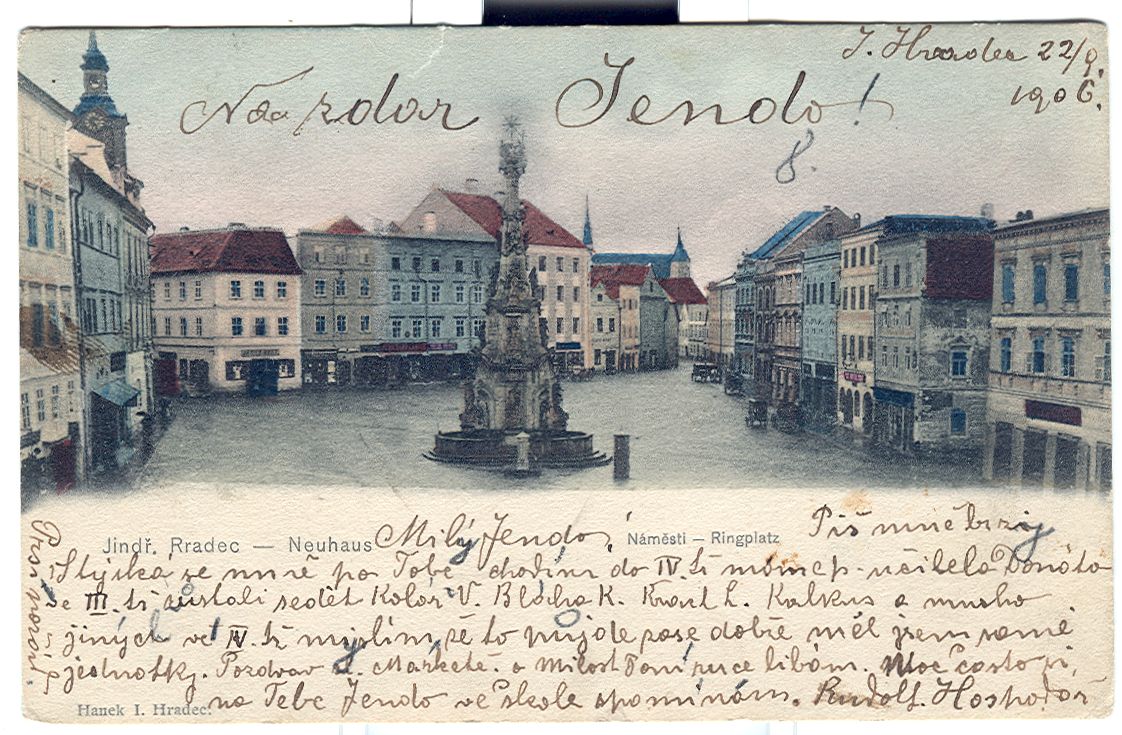 J. Hradec 22/9.
1906.
Nazdar Jendo!
8.
Jindř. Rradec — Neuhaus
Náměsti – Ringplatz
Milý Jendo, Piš mně brzy
Stýská se mně po Tobě chodím do IV. tř mám p. učitele Donáta
ve III. tř zůstali sedět Kolář V. Blácha K. L. Kalkus a mnoho
jiných ve IV. tř myslím že to půjde zase dobře měl jsem samé
jednotky. Pozdrav Markétě a Milost Paní ruce líbám. Moc často si
na Tebe Jendo ve škole vzpomínám. Rudolf Hospodář
Hanek I. Hradec.